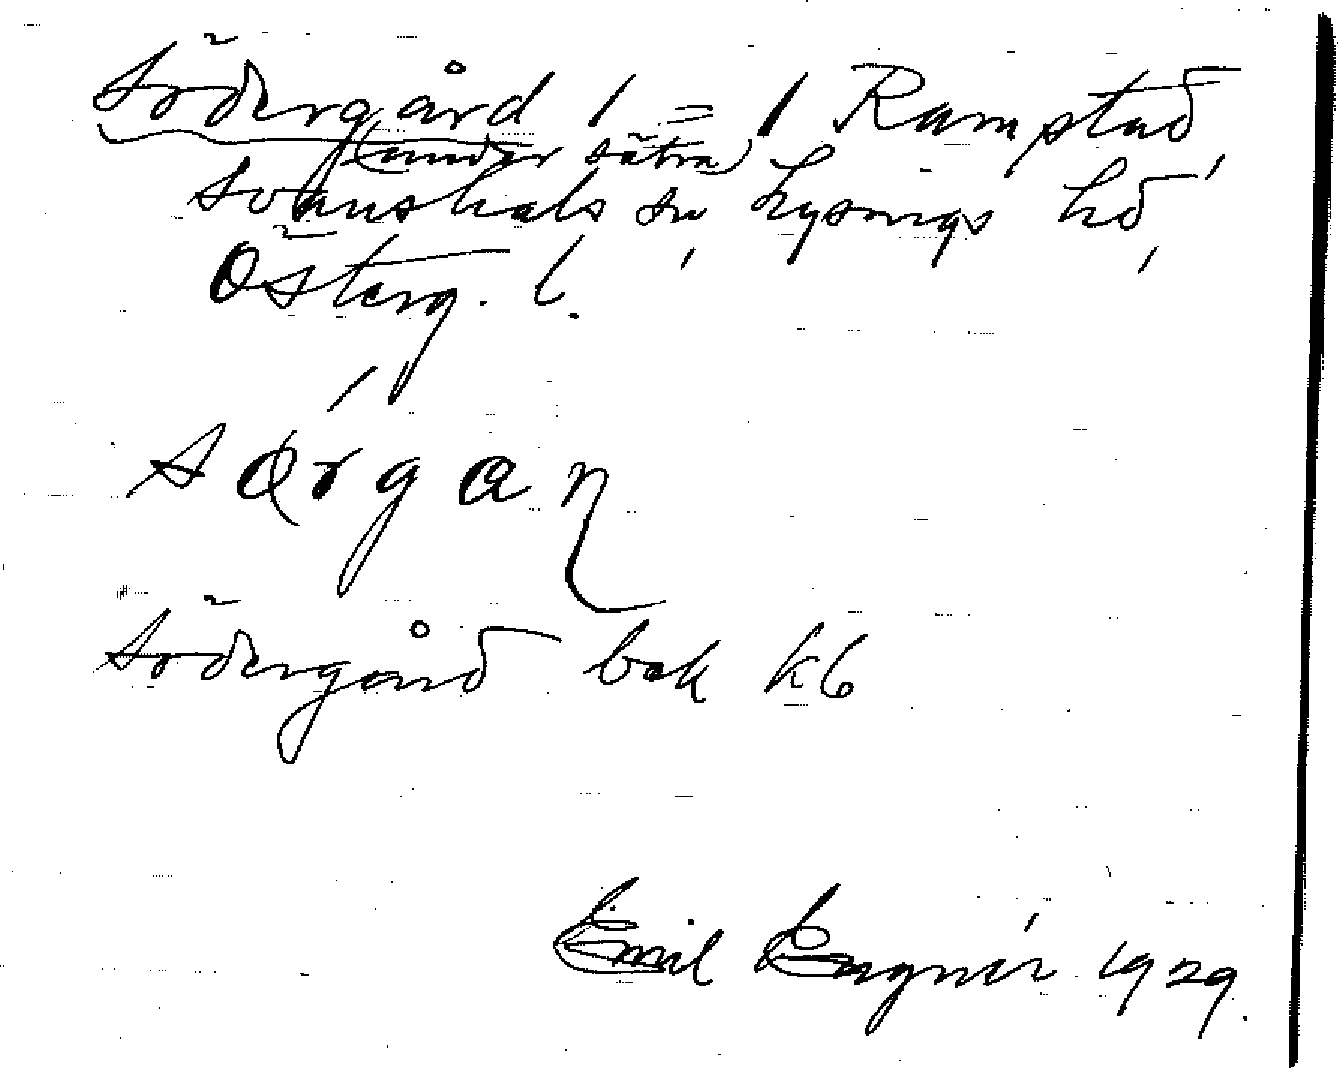 Södergård 1 = 1 Ramstad,
(under Sätra)
Svanshals sn, Lysings hd,
Österg. l.
Södergård bok kb
Emil Engnér 1929.